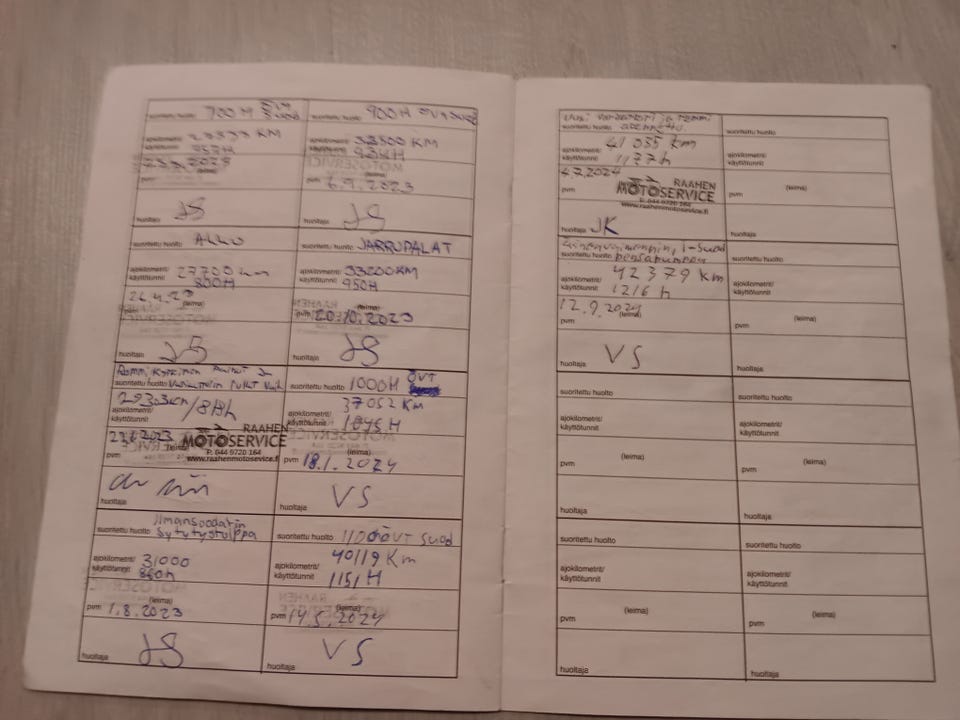 suoritettu huolto 700H
ajokilometrit/ KM
käyttötunnit
pvm (leima)
huoltaja JS
suoritettu huolto ALKO
ajokilometrit/ 27700 km
käyttötunnit 800H
(leima)
huoltaja JS
suoritettu huolto
ajokilometrit/
käyttötunnit
RAAHEN
MOTOSERVICE
P. 044 9720 164
www.raahenmotoservice.fi
pvm (leima)
huoltaja
Ilmansuodatin
suoritettu huolto Sytytystulppa
ajokilometrit/ 31000
käyttötunnit 860h
pvm 1.8.2023
huoltaja JS
suoritettu huolto 900H
ajokilometrit/ 32500 KM
käyttötunnit
RAAHEN
MOTOSERVICE
pvm 6.9.2023
huoltaja JS
suoritettu huolto JARRUPALAT
ajokilometrit/ 33200KM
käyttötunnit 950H
(leima)
pvm 20.10.2023
huoltaja JS
suoritettu huolto 1000H ÖVT
ajokilometrit/ 37052 KM
käyttötunnit 1045 H
(leima)
pvm 18.1.2024
huoltaja VS
suoritettu huolto 1100 ÖVT suod
ajokilometrit/ 40119 Km
käyttötunnit 1151 H
RAAHEN
MOTOSERVICE
(leima)
pvm 14.5.2024
huoltaja VS
Uusi variaattori ja remmi
suoritettu huolto asennettu
ajokilometrit/ 41055 km
käyttötunnit 1177h
4.7.2024
pvm
RAAHEN
MOTOSERVICE
P. 044 9720 164
www.raahenmotoservice.fi
huoltaja JK
Äänenvaimennin, i-suod
suoritettu huolto bensapumppu
ajokilometrit/ 42379 Km
käyttötunnit 1216 h
12.9.2024
pvm (leima)
huoltaja VS
suoritettu huolto
ajokilometrit/
käyttötunnit
pvm (leima)
huoltaja
suoritettu huolto
ajokilometrit/
käyttötunnit
pvm (leima)
huoltaja
suoritettu huolto
ajokilometrit/
käyttötunnit
pvm (leima)
huoltaja
suoritettu huolto
ajokilometrit/
käyttötunnit
pvm (leima)
huoltaja
suoritettu huolto
ajokilometrit/
käyttötunnit
pvm (leima)
huoltaja
suoritettu huolto
ajokilometrit/
käyttötunnit
pvm (leima)
huoltaja